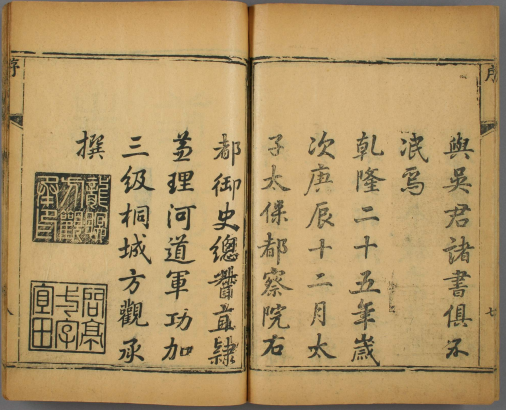 與吳君諸書俱不
泯焉
乾隆二十五年歲
次庚辰十二月太
子太保都察院右
都御史總督直隸
蓋理河道軍功加
三級桐城方觀承
撰
序
序
七
八
問亭
宜田